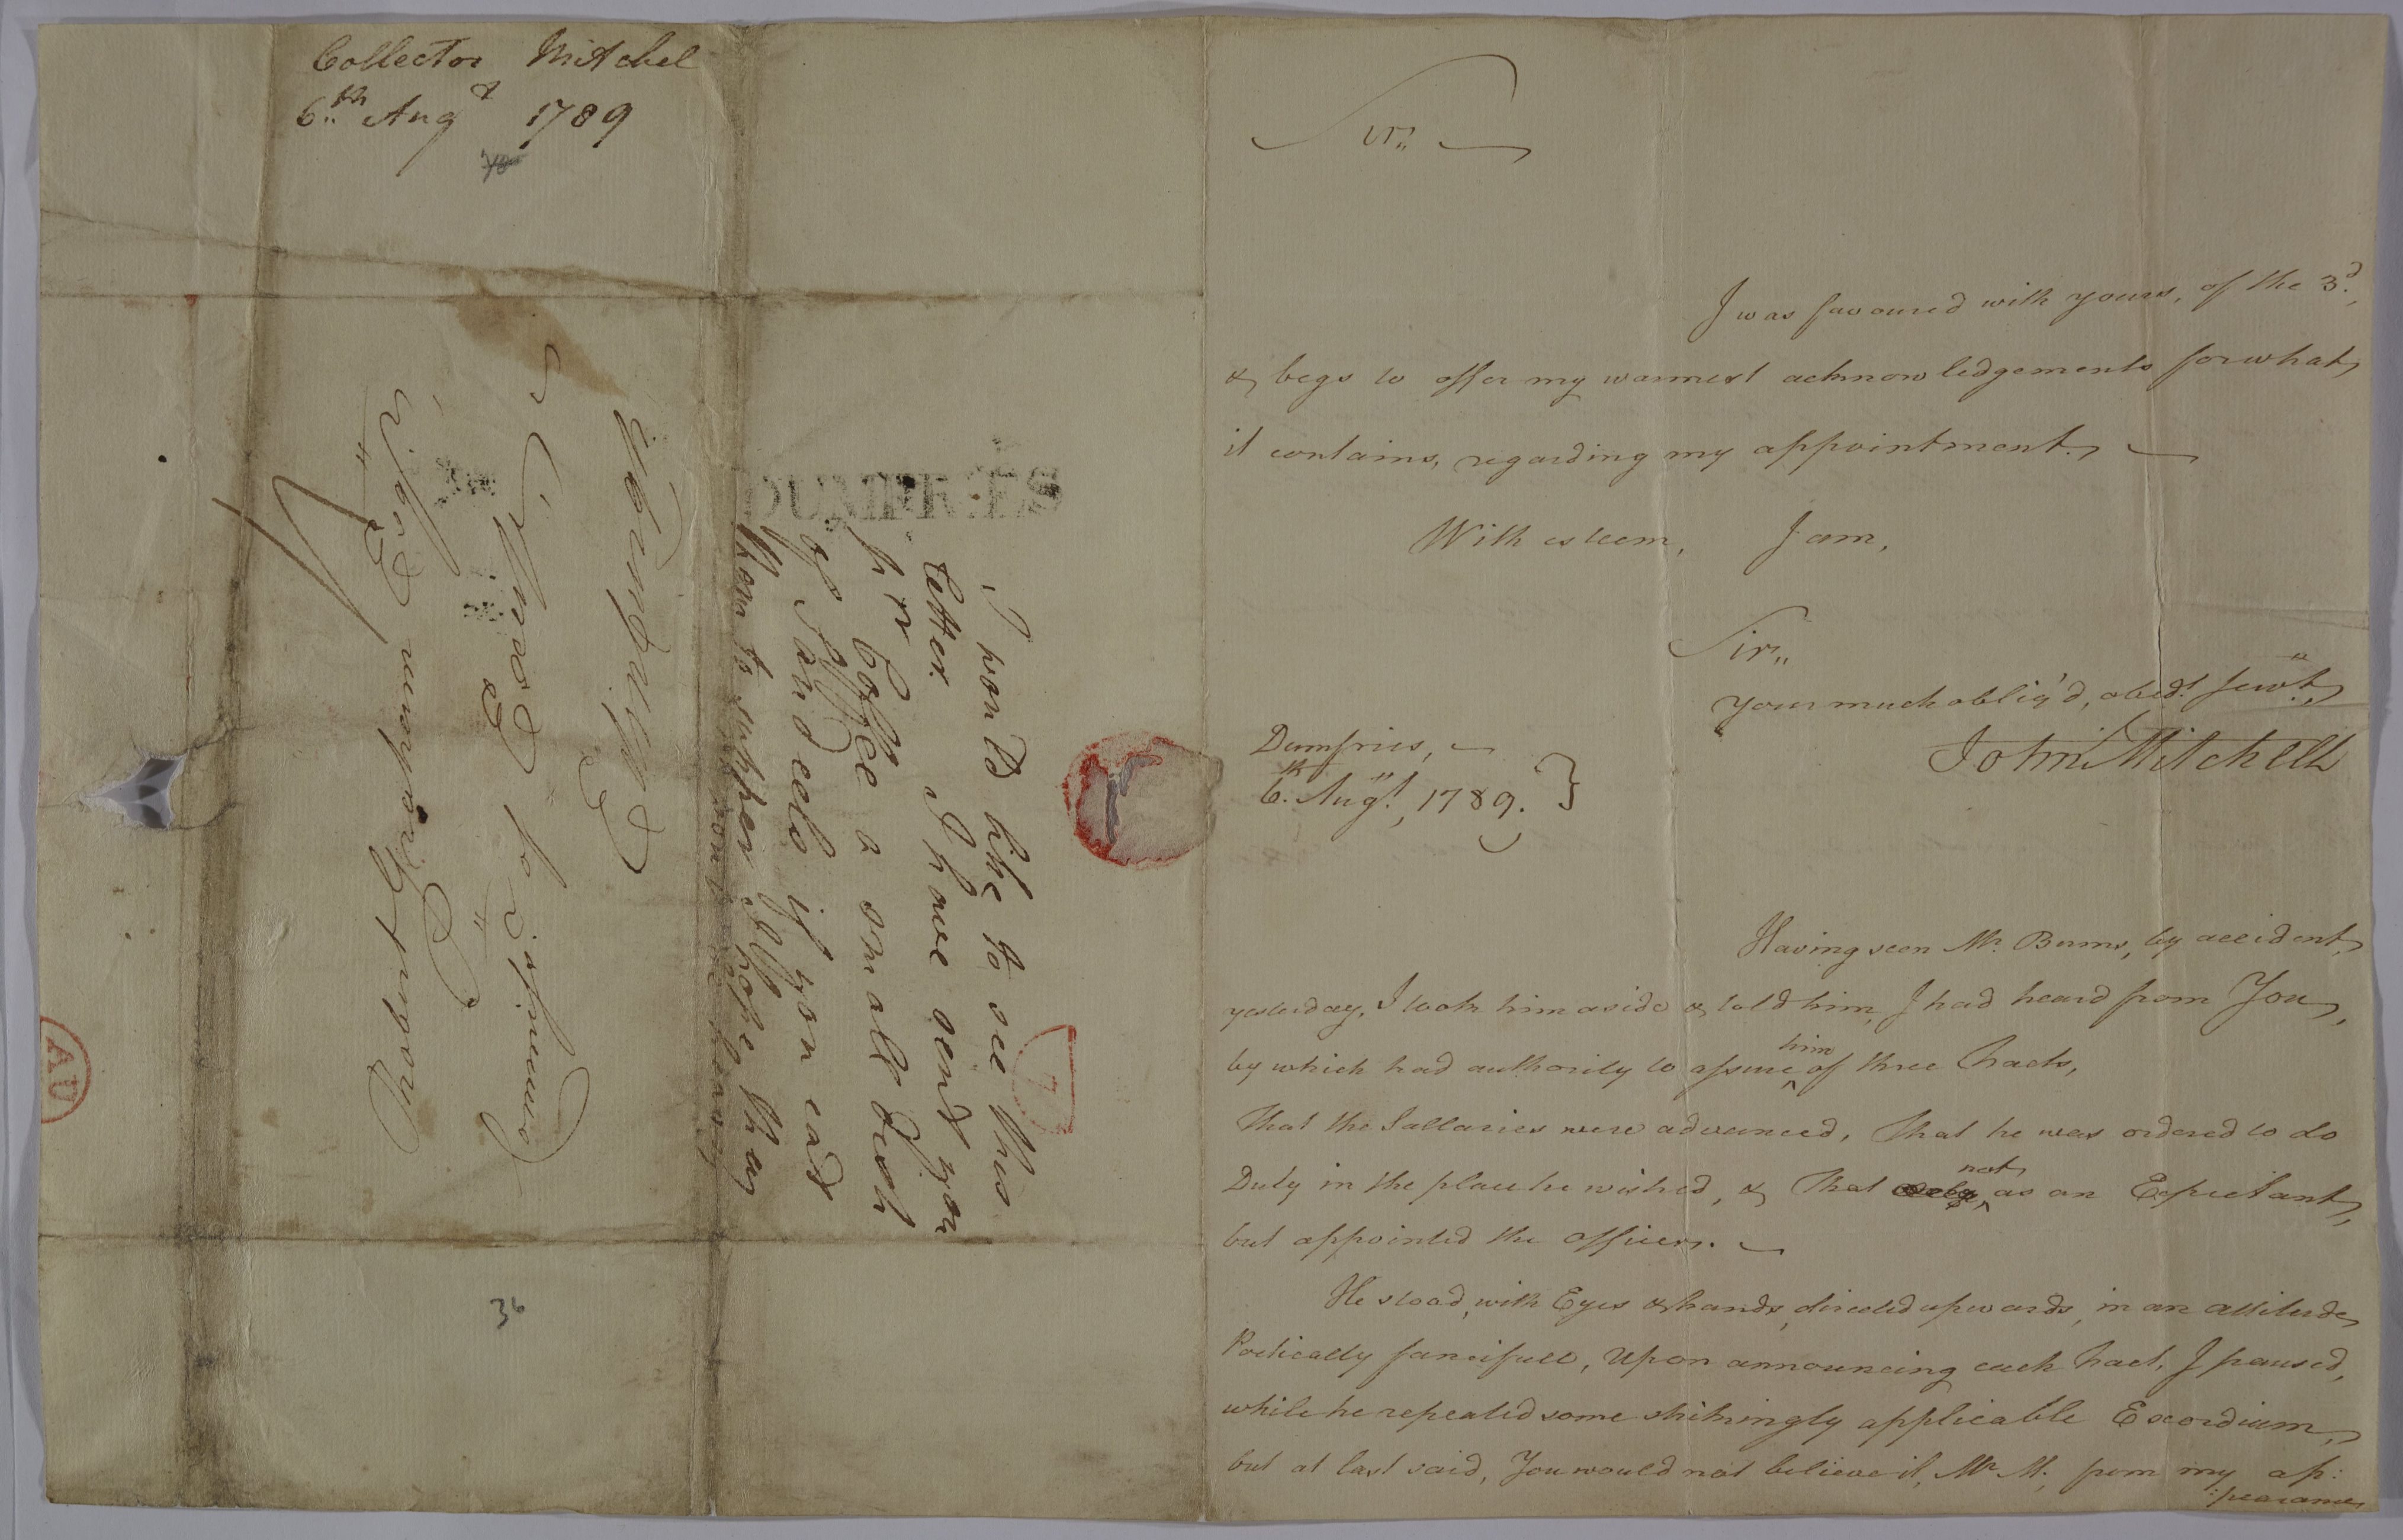 Collector Mitchel
6th Augt 1789
36
Robert Graham Esqr.
of Fintry
Commissr. of Excise
Edinburgh
DUMFRIES
I wou'd like to see this
letter. I have sent you
pr Coffee a small dish
of Sand eels if you eat
them to supper I hope they
AU
Sir,,
I was favoured with yours, of the 3d.,
& begs to offer my warmest acknowledgements for what
it contains, regarding my appointment. —
With esteem, I am,
Sir,,
your much oblig'd, obedt. servt,
John Mitchell
Dumfries, —
6th. Augt., 1789. }
Having seen Mr. Burns, by accident,
yesterday, I took him aside & told him, I had heard from You,
by which had authority to assure ^him of three Facts,
That the Sallaries were advanced, That he was ordered to do
Duty in the place he wished, & That ^not as an Expectant,
but appointed the officer. —
He stood, with Eyes & hands, directed upwards, in an attitude
Poetically fancifull, Upon announcing each Fact, I paused,
while he repeated some strikingly applicable Exordium,
but at last said, You would not believe it, Mr. M., from my ap:
:pearance,